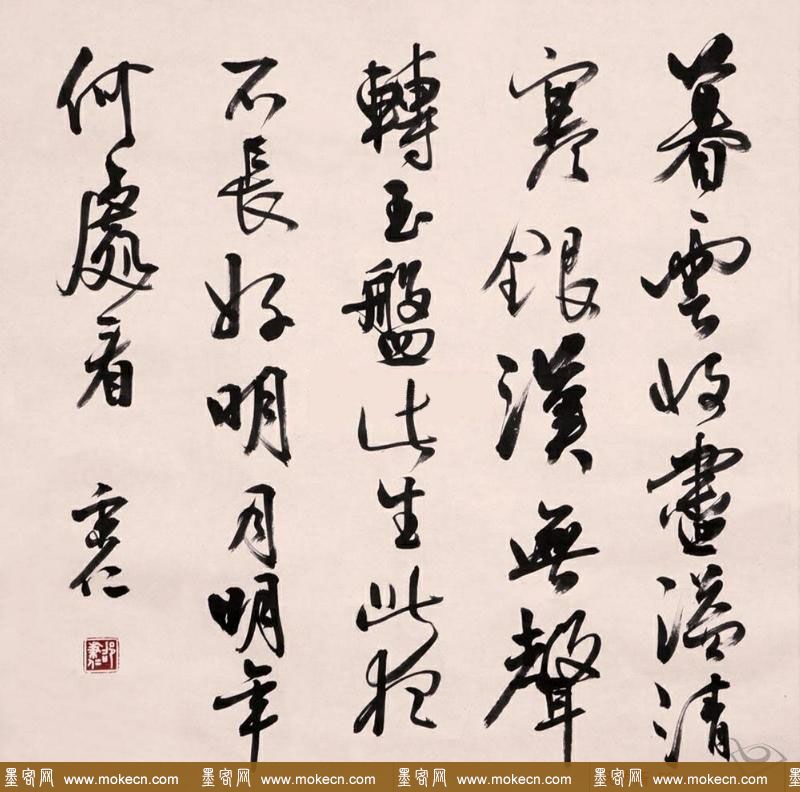 暮雲收盡溢清
寒銀漢無聲
轉玉盤此生此夜
不長好明月明年
何處看
秉仁
邵秉仁
墨客网 www.mokecn.com 墨客网 www.mokecn.com 墨客网 www.mokecn.com 墨客网 www.mokecn.com